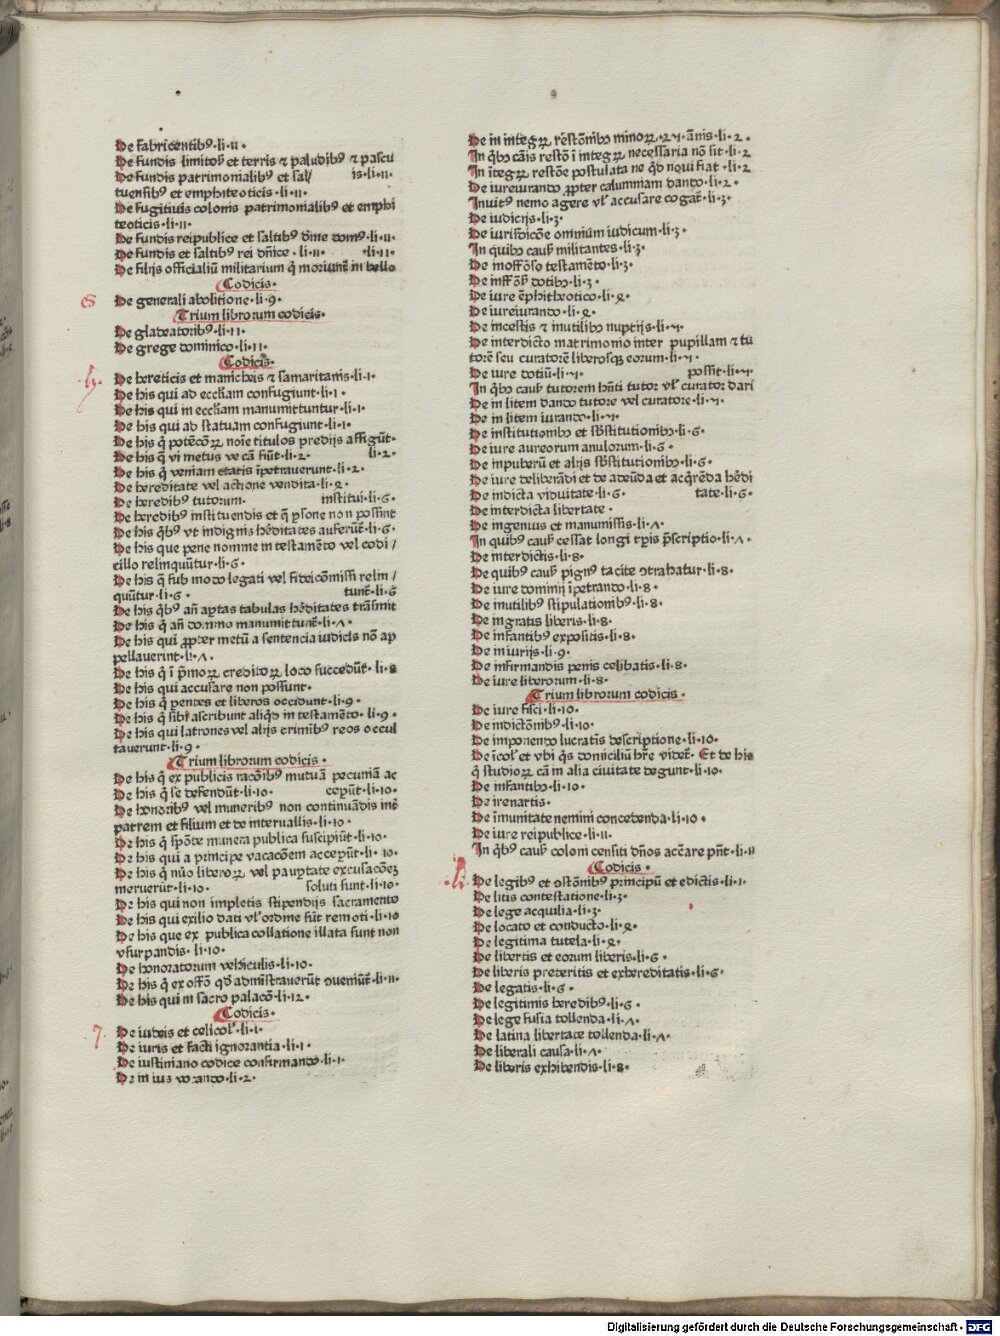 De fabricentibꝰ·li·11·
De fundis limitoꝵ et terris ⁊ paludibꝰ ⁊ pascu
De fundis patrimonialibꝰ et sal/ is·li·11·
tuensibꝰ et emphiteoticis·li·11·
De fugitiuis colonis patrimonialibꝰ et emphi
teoticis·li·11·
De fundis reipublice et saltibꝰ diuine domꝰ·li·11·
De fundis et saltibꝰ rei dñice·li·11· ·li·11·
De filijs officialiū militarium q̄ moriunt̄ in bello
Codicis·
G De generali abolitione·li·9·
Trium librorum codicis·
De gladeatoribꝰ·li·11·
De grege dominico·li·11·
Codicis·
h De hereticis et manicheis ⁊ samaritanis·li·1·
De his qui ad eccl̄iam confugiunt·li·1·
De his qui in eccl̄iam manumittuntur·li·1·
De his qui ad statuam confugiunt·li·1·
De his q̄ potētioꝝ noīe titulos predijs affigūt·
De his q̄ vi metus ve cā fiūt·li·2· li·2·
De his q̄ veniam etatis īpetrauerunt·li·2·
De hereditate vel actione vendita·li·4·
De heredibꝰ tutorum· institui·li·6·
De heredibꝰ instituendis et q̄ ꝑsone non possint
De his qͥbꝰ vt indignis hēditates auferūt̄·li·6·
De his que pene nomine in testamēto vel codi/
cillo relinquūtur·li·6·
De his q̄ sub modo legati vel fideicōmissi relin/
quūtur·li·6· tunt̄·li·6
De his qͥbꝰ añ aꝑtas tabulas hēditates trāsmit
De his q̄ añ domino manumitunt̄·li·7·
De his qui ꝓpter metū a sentencia iudicis nō ap
pellauerint·li·7·
De his q̄ ī pͥmoꝝ creditoꝝ loco succedūt·li·8
De his qui accusare non possunt·
De his q̄ pentes et liberos occidunt·li·9·
De his q̄ sibi ascribunt aliqd̄ in testamēto·li·9·
De his qui latrones vel alijs criminibꝰ reos occul
tauerunt·li·9·
Trium librorum codicis·
De his q̄ ex publicis racōibꝰ mutuā pecuniā ac
De his q̄ se defendūt·li·10· cepūt·li·10·
De honoribꝰ vel muneribꝰ non continuādis int̄
patrem et filium et de interuallis·li·10·
De his q̄ spōte munera publica suscipiūt·li·10·
De his qui a principe vacacōem acceꝑūt·li·10·
De his q̄ nūo liberoꝝ vel pauꝑtate excusacōeʒ
meruerūt·li·10· soluti sunt·li·10·
De his qui non impletis stipendijs sacramento
De his qui exilio dati vl̄ ordine sūt remoti·li·10
De his que ex publica collatione illata sunt non
vsurpandis·li·10·
De honoratorum vehiculis·li·10·
De his q̄ ex offō qd̄ admīstrauerūt ꝯueniūt̄·li·11·
De his qui in sacro palacō·li·12·
Codicis·
7 De iudeis et celicol̄·li·1·
De iuris et facti ignorantia·li·1·
De iustiniano codice confirmando·li·1·
De in ius vocando·li·2·
De in integꝝ restōnibꝰ minoꝝ·25·annis·li·2·
In qͥbꝰ cāis restōi ī integꝝ necessaria nō sit·li·2
In ītegꝝ restōe postulata ne qd̄ noui fiat·li·2
De iureiurando ꝓpter calumniam dando·li·2·
Inuitꝰ nemo agere vl̄ accusare cogat̄·li·3·
De iudicijs·li·3·
De iurisdicōe omnium iudicum·li·3·
In quibꝰ causis militantes·li·3·
De inoffōso testamēto·li·3·
De inoffōs̄ dotibꝰ·li·3·
De iure ēphitheotico·li·4·
De iureiurando·li·4·
De incestis ⁊ inutilibꝰ nuptijs·li·5·
De interdicto matrimonio inter pupillam ⁊ tu
torē seu curatorē liberosqꝫ eorum·li·5·
De iure dotiū·li·5· possit·li·5·
In qͥbꝰ causis tutorem hn̄ti tutor vl̄ curator dari
De in litem dando tutore vel curatore·li·5·
De in litem iurando·li·5·
De institutionibꝰ et sb̄stitutionibꝰ·li·6·
De iure aureorum anulorum·li·6·
De inpuberū et alijs sb̄stitutionibꝰ·li·6·
De iure deliberādi et de adeūda et acqͥrēda hēdi
De indicta viduitate·li·6· tate·li·6·
De interdicta libertate·
De ingenuis et manumissis·li·7·
In quibꝰ causis cessat longi tp̄is p̄scriptio·li·7·
De interdictis·li·8·
De quibꝰ causis pignꝰ tacite ꝯtrahatur·li·8·
De iure dominij īpetrando·li·8·
De inutilibꝰ stipulationibꝰ·li·8·
De ingratis liberis·li·8·
De infantibꝰ expositis·li·8·
De iniurijs·li·9·
De infirmandis penis celibatis·li·8·
De iure liberorum·li·8·
Trium librorum codicis·
De iure fisci·li·10·
De indictōnibꝰ·li·10·
De imponendo lucratis descriptione·li·10·
De īcol̄ et vbi qͥs domiciliū hr̄e videt̄· Et de his
q̄ studioꝝ cā in alia ciuitate degunt·li·10·
De infantibꝰ·li·10·
De irenartis·
De īmunitate nemini concedenda·li·10·
De iure reipublice·li·11·
In qͥbꝰ causis coloni censiti dños accūare pn̄t·li·11
Codicis·
L De legibꝰ et ꝯstōnibꝰ principū et edictis·li·1·
De litis contestatione·li·3·
De lege acquilia·li·3·
De locato et conducto·li·4·
De legitima tutela·li·4·
De libertis et eorum liberis·li·6·
De liberis preteritis et exhereditatis·li·6·
De legatis·li·6·
De legitimis heredibꝰ·li·6·
De lege fusia tollenda·li·7·
De latina libertate tollenda·li·7·
De liberali causa·li·7·
De liberis exhibendis·li·8·
Digitalisierung gefördert durch die Deutsche Forschungsgemeinschaft - DFG